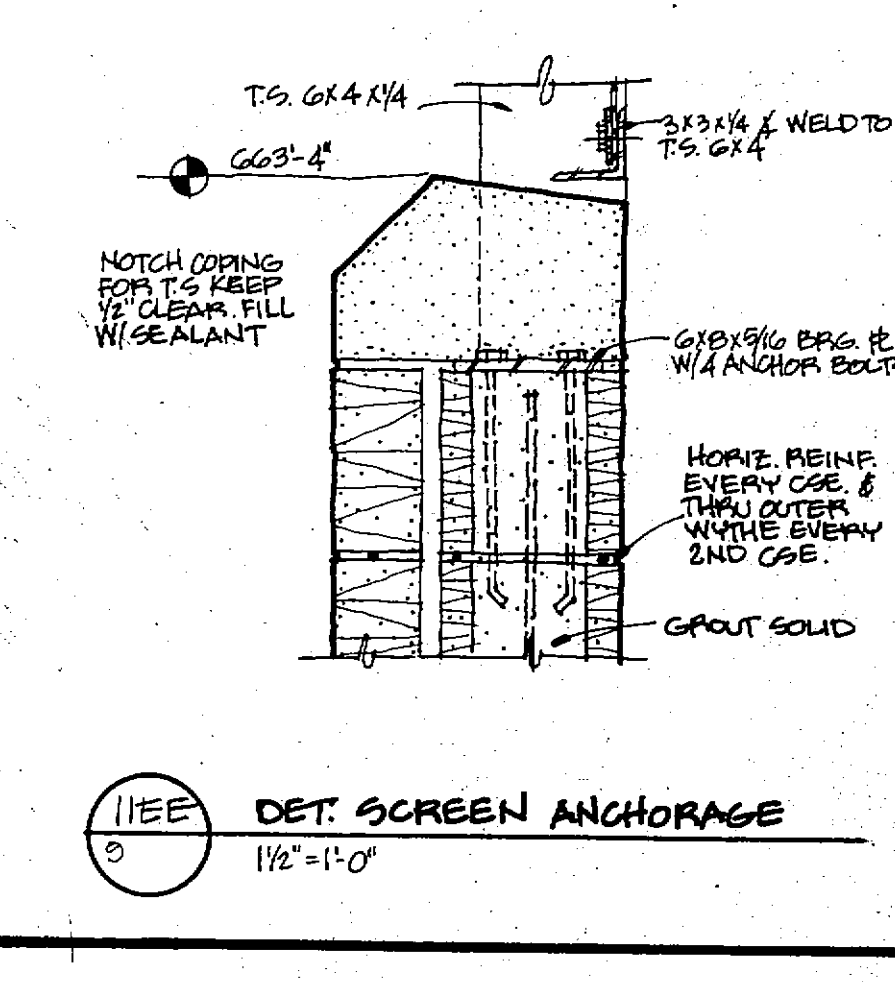 T.S. 6X4X1/4
3X3X1/4 ∠ WELD TO
T.S. 6X4
663'-4"
NOTCH COPING
FOR T.S KEEP
1/2" CLEAR. FILL
W/ SEALANT
6X8X5/16 BRG. PL
W/4 ANCHOR BOLT
HORIZ. REINF.
EVERY CSE. &
THRU OUTER
WYTHE EVERY
2ND CSE.
GROUT SOLID
11EE
9
DET. SCREEN ANCHORAGE
1 1/2" = 1'-0"